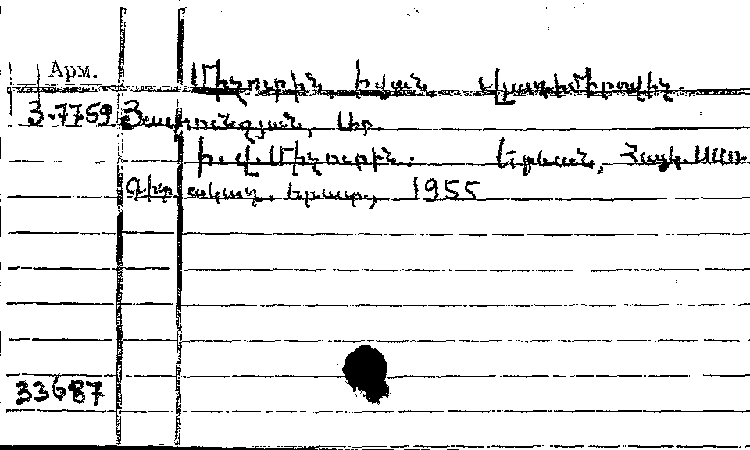 Арм.
Միչուրին Իվան Վլադիմիրովիչ
3-7759 Յակուբզյան, Սիր.
Ի. Վ. Միչուրին. Երևան, Հայկ. ՍՍՌ
Գիտ. ակադ. հրատ., 1955
33687